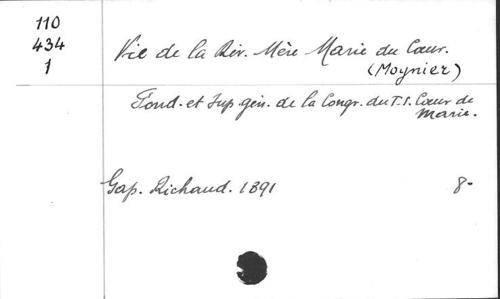 110
434
1
Vie de la Rév. Mère Marie du Cœur.
(Moynier)
Fond. et Sup. gén. de la Congr. du T. S. Cœur de
Marie.
Gap. Richaud. 1891
8.